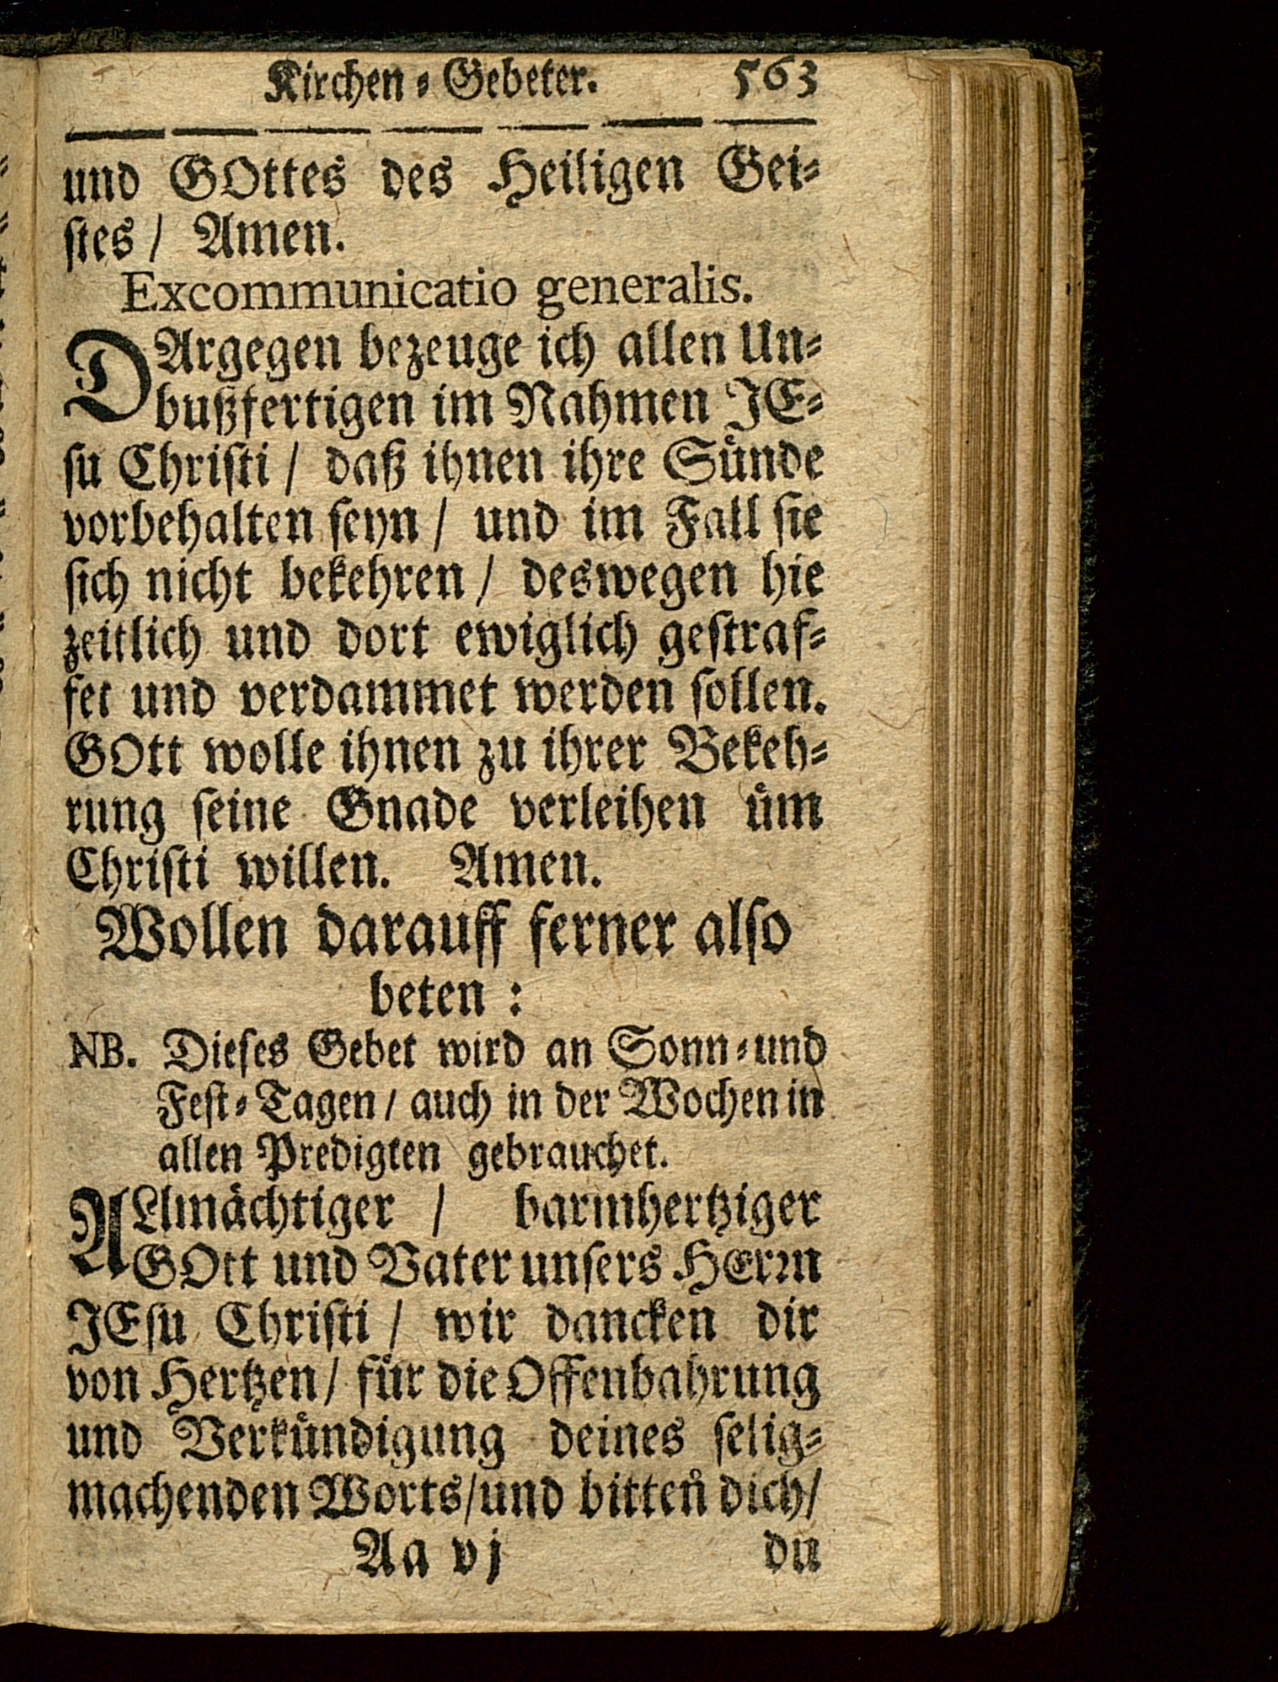 Kirchen⸗Gebeter. 563
und GOttes des Heiligen Gei⸗
ſtes / Amen.
Excommunicatio generalis.
DArgegen bezeuge ich allen Un⸗
bußfertigen im Nahmen JE⸗
ſu Chriſti / daß ihnen ihre Suͤnde
vorbehalten ſeyn / und im Fall ſie
ſich nicht bekehren / deswegen hie
zeitlich und dort ewiglich geſtraf⸗
fet und verdammet werden ſollen.
GOtt wolle ihnen zu ihrer Bekeh⸗
rung ſeine Gnade verleihen uͤm
Chriſti willen. Amen.
Wollen darauff ferner alſo
beten :
NB. Dieſes Gebet wird an Sonn⸗und
Feſt⸗Tagen / auch in der Wochen in
allen Predigten gebrauchet.
ALlmaͤchtiger / barmhertziger
GOtt und Vater unſers HErꝛn
JEſu Chriſti / wir dancken dir
von Hertzen / fuͤr die Offenbahrung
und Verkuͤndigung deines ſelig⸗
machenden Worts/und bitten dich/
Aa vj du